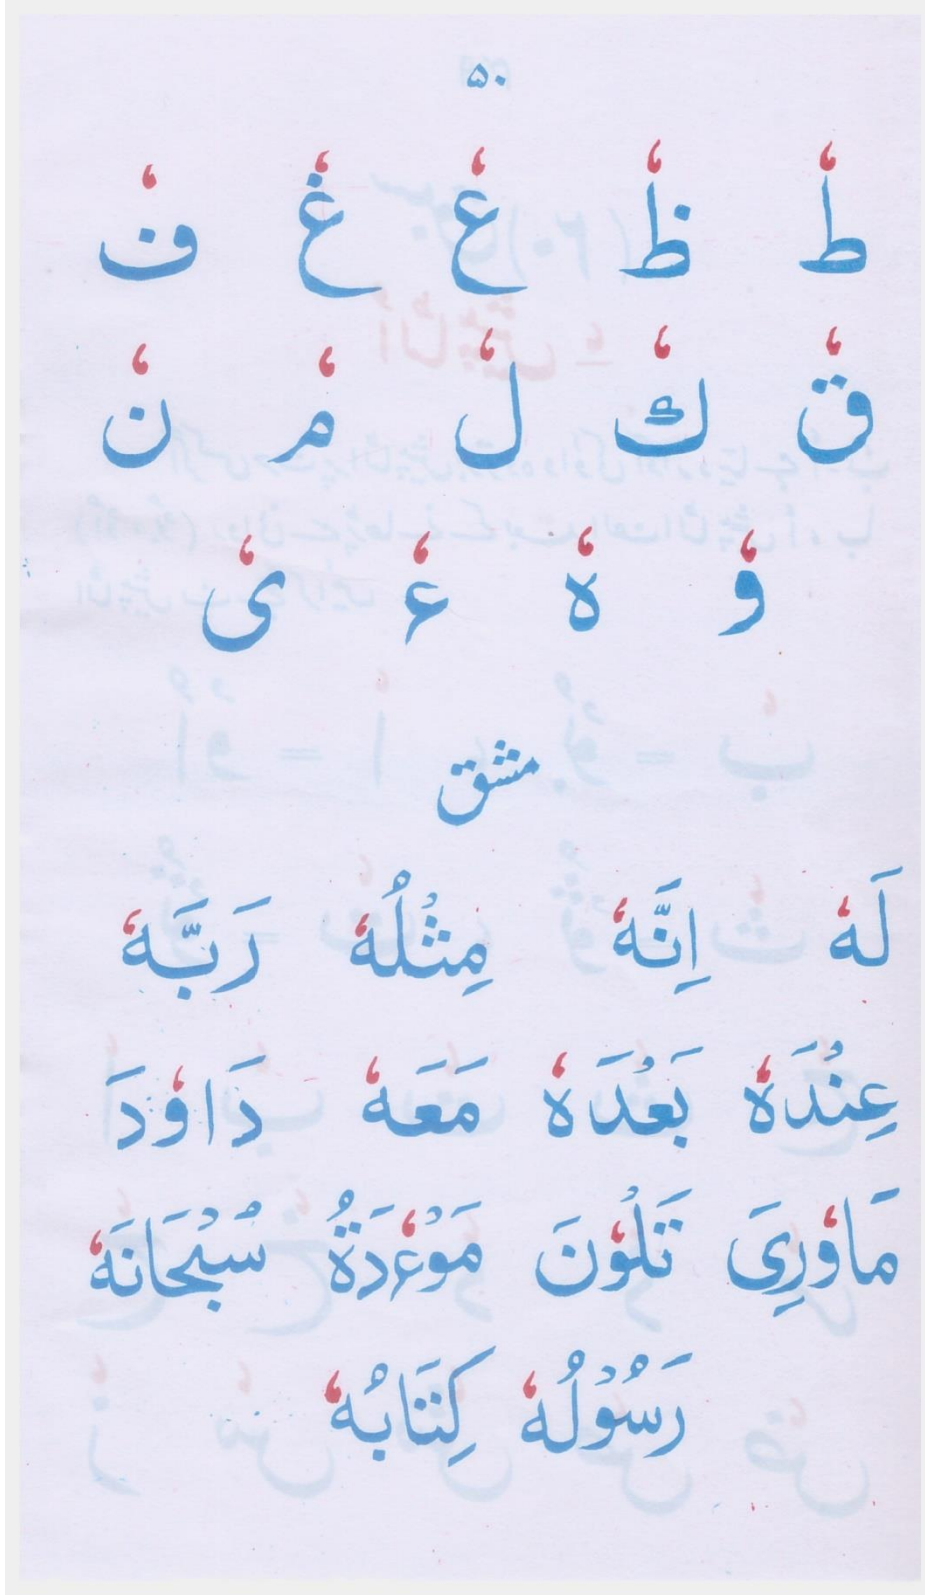 ۵۰
طٗ ظٗ عٗ غٗ فٗ
قٗ كٗ لٗ مٗ نٗ
وٗ هٗ ءٗ یٗ
مشق
لَهٗ اِنَّهٗ مِثْلُهٗ رَبَّهٗ
عِنْدَهٗ بَعْدَهٗ مَعَهٗ دَاوٗدَ
مَاوٗرِیَ تَلْوٗنَ مَوْءٗدَةُ سُبْحَانَهٗ
رَسُوْلُهٗ كِتَابُهٗ